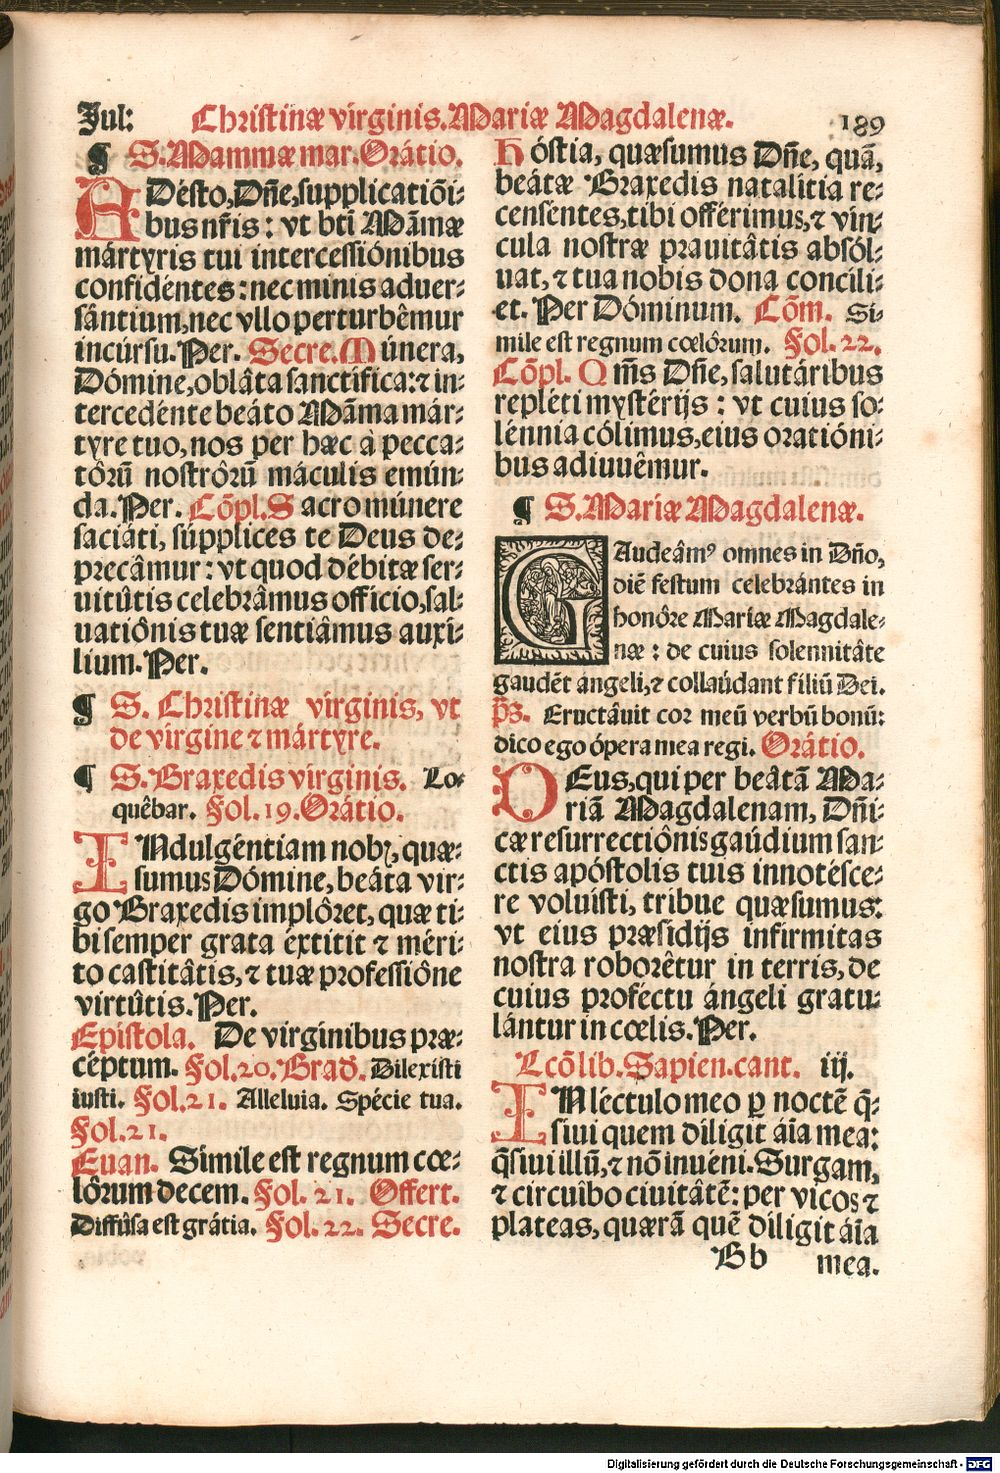 Jul: Christinæ virginis. Mariæ Magdalenæ. 189
¶ S. Mammæ mar. Orátio.
ADésto, Dñe, supplicatiõi⸗
bus nr̃is: vt btĩ Mãmæ
mártyris tui intercessiónibus
confidéntes: nec minis aduer⸗
sántium, nec vllo perturbêmur
incúrsu. Per. Secre. Múnera,
Dómine, oblâta sanctífica: ⁊ in⸗
tercedénte beáto Mãma már⸗
tyre tuo, nos per hæc à pecca⸗
tôrũ nostrôrũ máculis emún⸗
da. Per. Cõpl. Sacro múnere
saciáti, súpplices te Deus de⸗
precâmur: vt quod débitæ ser⸗
uitûtis celebrâmus officio, sal⸗
uatiônis tuæ sentiâmus auxí⸗
lium. Per.
¶ S. Christinæ virginis, vt
de virgine ⁊ mártyre.
¶ S. Braxedis virginis. Lo⸗
quêbar. Fol. 19. Orátio.
INdulgéntiam nobꝭ, quæ⸗
sumus Dómine, beáta vir⸗
go Braxedis implôret, quæ ti⸗
bi semper grata éxtitit ⁊ méri⸗
to castitâtis, ⁊ tuæ professiône
virtûtis. Per.
Epístola. De virginibus præ⸗
céptum. Fol. 20. Grad. Dilexísti
iusti. Fol. 21. Alleluia. Spécie tua.
Fol. 21.
Euan. Símile est regnum cœ⸗
lôrum decem. Fol. 21. Offert.
Diffûsa est grátia. Fol. 22. Secre.
Hóstia, quæsumus Dñe, quã,
beátæ Braxedis natalítia re⸗
censentes, tibi offérimus, ⁊ vín⸗
cula nostræ prauitâtis absól⸗
uat, ⁊ tua nobis dona concíli⸗
et. Per Dóminum. Cõm. Sí⸗
mile est regnum cœlôrum. Fol. 22.
Cõpl. Qm̃s Dñe, salutáribus
repléti mystérijs: vt cuius so⸗
lénnia cólimus, eius oratióni⸗
bus adiuuêmur.
¶ S. Mariæ Magdalenæ.
GAudeâmꝰ omnes in Dño,
diẽ festum celebrántes in
honôre Mariæ Magdale⸗
næ: de cuius solennitâte
gaudẽt ángeli, ⁊ collaúdant filiũ Dei.
p̃s. Eructâuit cor meũ verbũ bonũ:
dico ego ópera mea regi. Orátio.
DEus, qui per beâtã Ma⸗
riã Magdalenam, Dñi⸗
cæ resurrectiônis gaúdium san⸗
ctis apóstolis tuis innotésce⸗
re voluísti, tribue quæsumus:
vt eius præsidijs infirmitas
nostra roborêtur in terris, de
cuius proféctu ángeli gratu⸗
lántur in cœlis. Per.
Lcõ lib. Sapien. cant. iij.
IN léctulo meo ꝑ noctẽ q̃⸗
siui quem diligit aĩa mea:
q̃siui illũ, ⁊ nõ inuéni. Surgam,
⁊ circuîbo ciuitâtẽ: per vicos ⁊
plateas, quærã quẽ díligit aĩa
Bb mea.
Digitalisierung gefördert durch die Deutsche Forschungsgemeinschaft - DFG